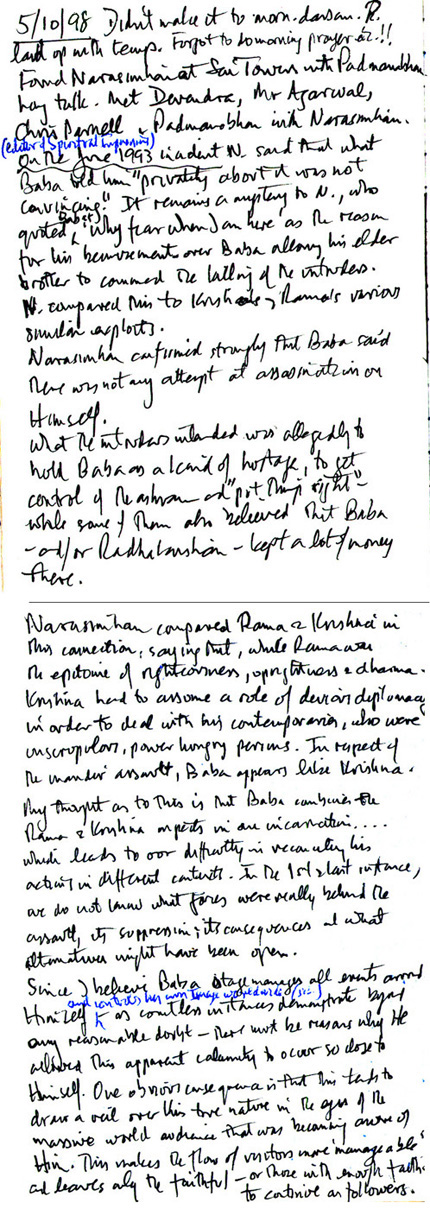 5/10/98 Didn't make it to morn. darsan. R.
laid up with temp. Forgot to do morning prayer etc!!
Found Narasimhan at Sai Towers with Padmanabhan
long talk. Met Devendra, Mr Agarwal,
Chris Parnell & Padmanabhan with Narasimhan.
(editor of Spiritual Impressions)
On the June 1993 incident N. said that what
Baba told him "privately about it was not
convincing." It remains a mystery to N., who
quoted Baba's "Why fear when I am here" as the reason
for his bemusement over Baba allowing his elder
brother to command the killing of the intruders.
N. compared this to Krishna's & Rama's various
similar exploits.
Narasimhan confirmed strongly that Baba said
there was not any attempt at assassination on
Himself.
What the intruders intended was allegedly to
hold Baba as a kind of hostage, to get
control of the ashram and "put things right" -
while some of them also believed that Baba
- and/or Radhakrishnan - kept a lot of money
there.
Narasimhan compared Rama & Krishna in
this connection, saying that, while Rama was
the epitome of righteousness, uprightness & dharma.
Krishna had to assume a role of devious diplomacy
in order to deal with his contemporaries, who were
unscrupulous, power hungry persons. In respect of
the mandir assault, Baba appears like Krishna.
My thought as to this is that Baba combines the
Rama & Krishna aspects in one incarnation....
which leads to our difficulty in reconciling his
actions in different contexts. In the 1st & last instance,
we do not know what forces were really behind the
assault, its suppression & its consequences and what
alternatives might have been open.
Since I believe Baba stage manages all events around
and controls his own image worldwide (sic)
Himself as countless instances demonstrate beyond
any reasonable doubt - there must be reasons why He
allowed this apparent calamity to occur so close to
Himself. One obvious consequence is that this tends to
draw a veil over his true nature in the eyes of the
massive world audience that was becoming aware of
Him. This makes the flow of visitors more "manageable"
and leaves only the faithful - or those with enough faith -
to continue as followers.